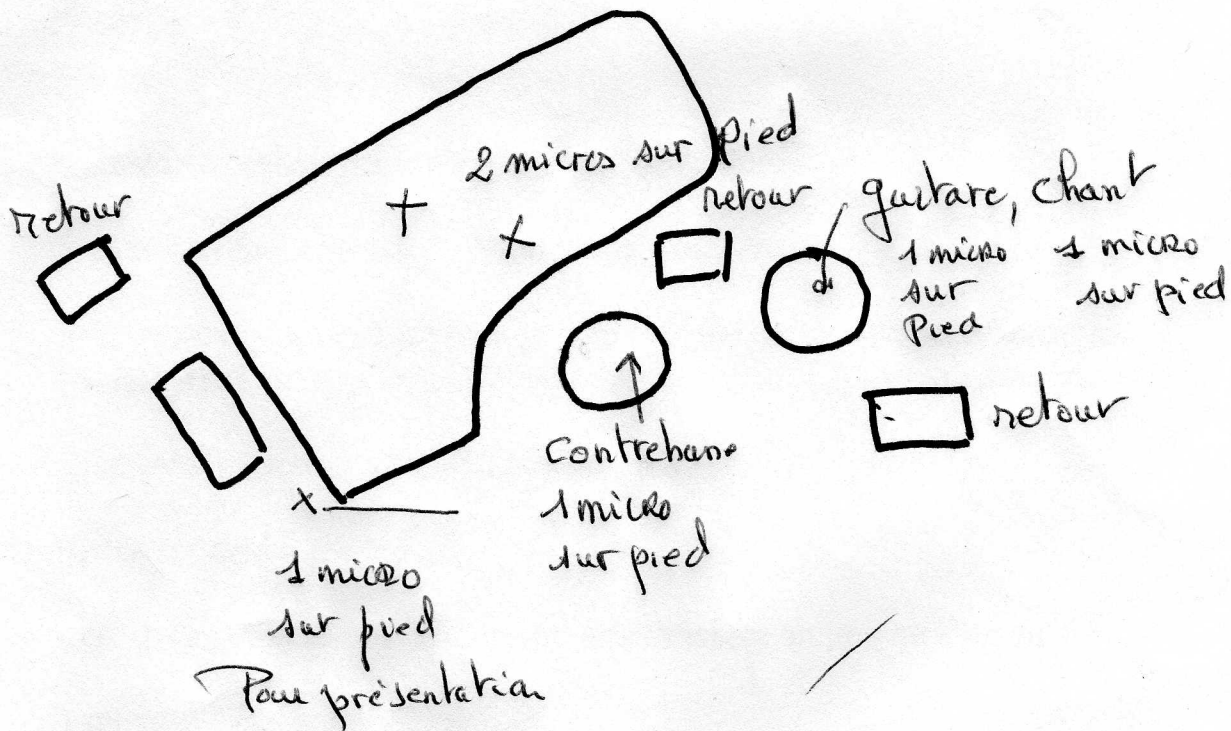 2 micros sur pied
retour
retour
guitare, chant
1 micro
sur
Pied
1 micro
sur pied
retour
Contrebasse
1 micro
sur pied
1 micro
sur pied
Pour présentation